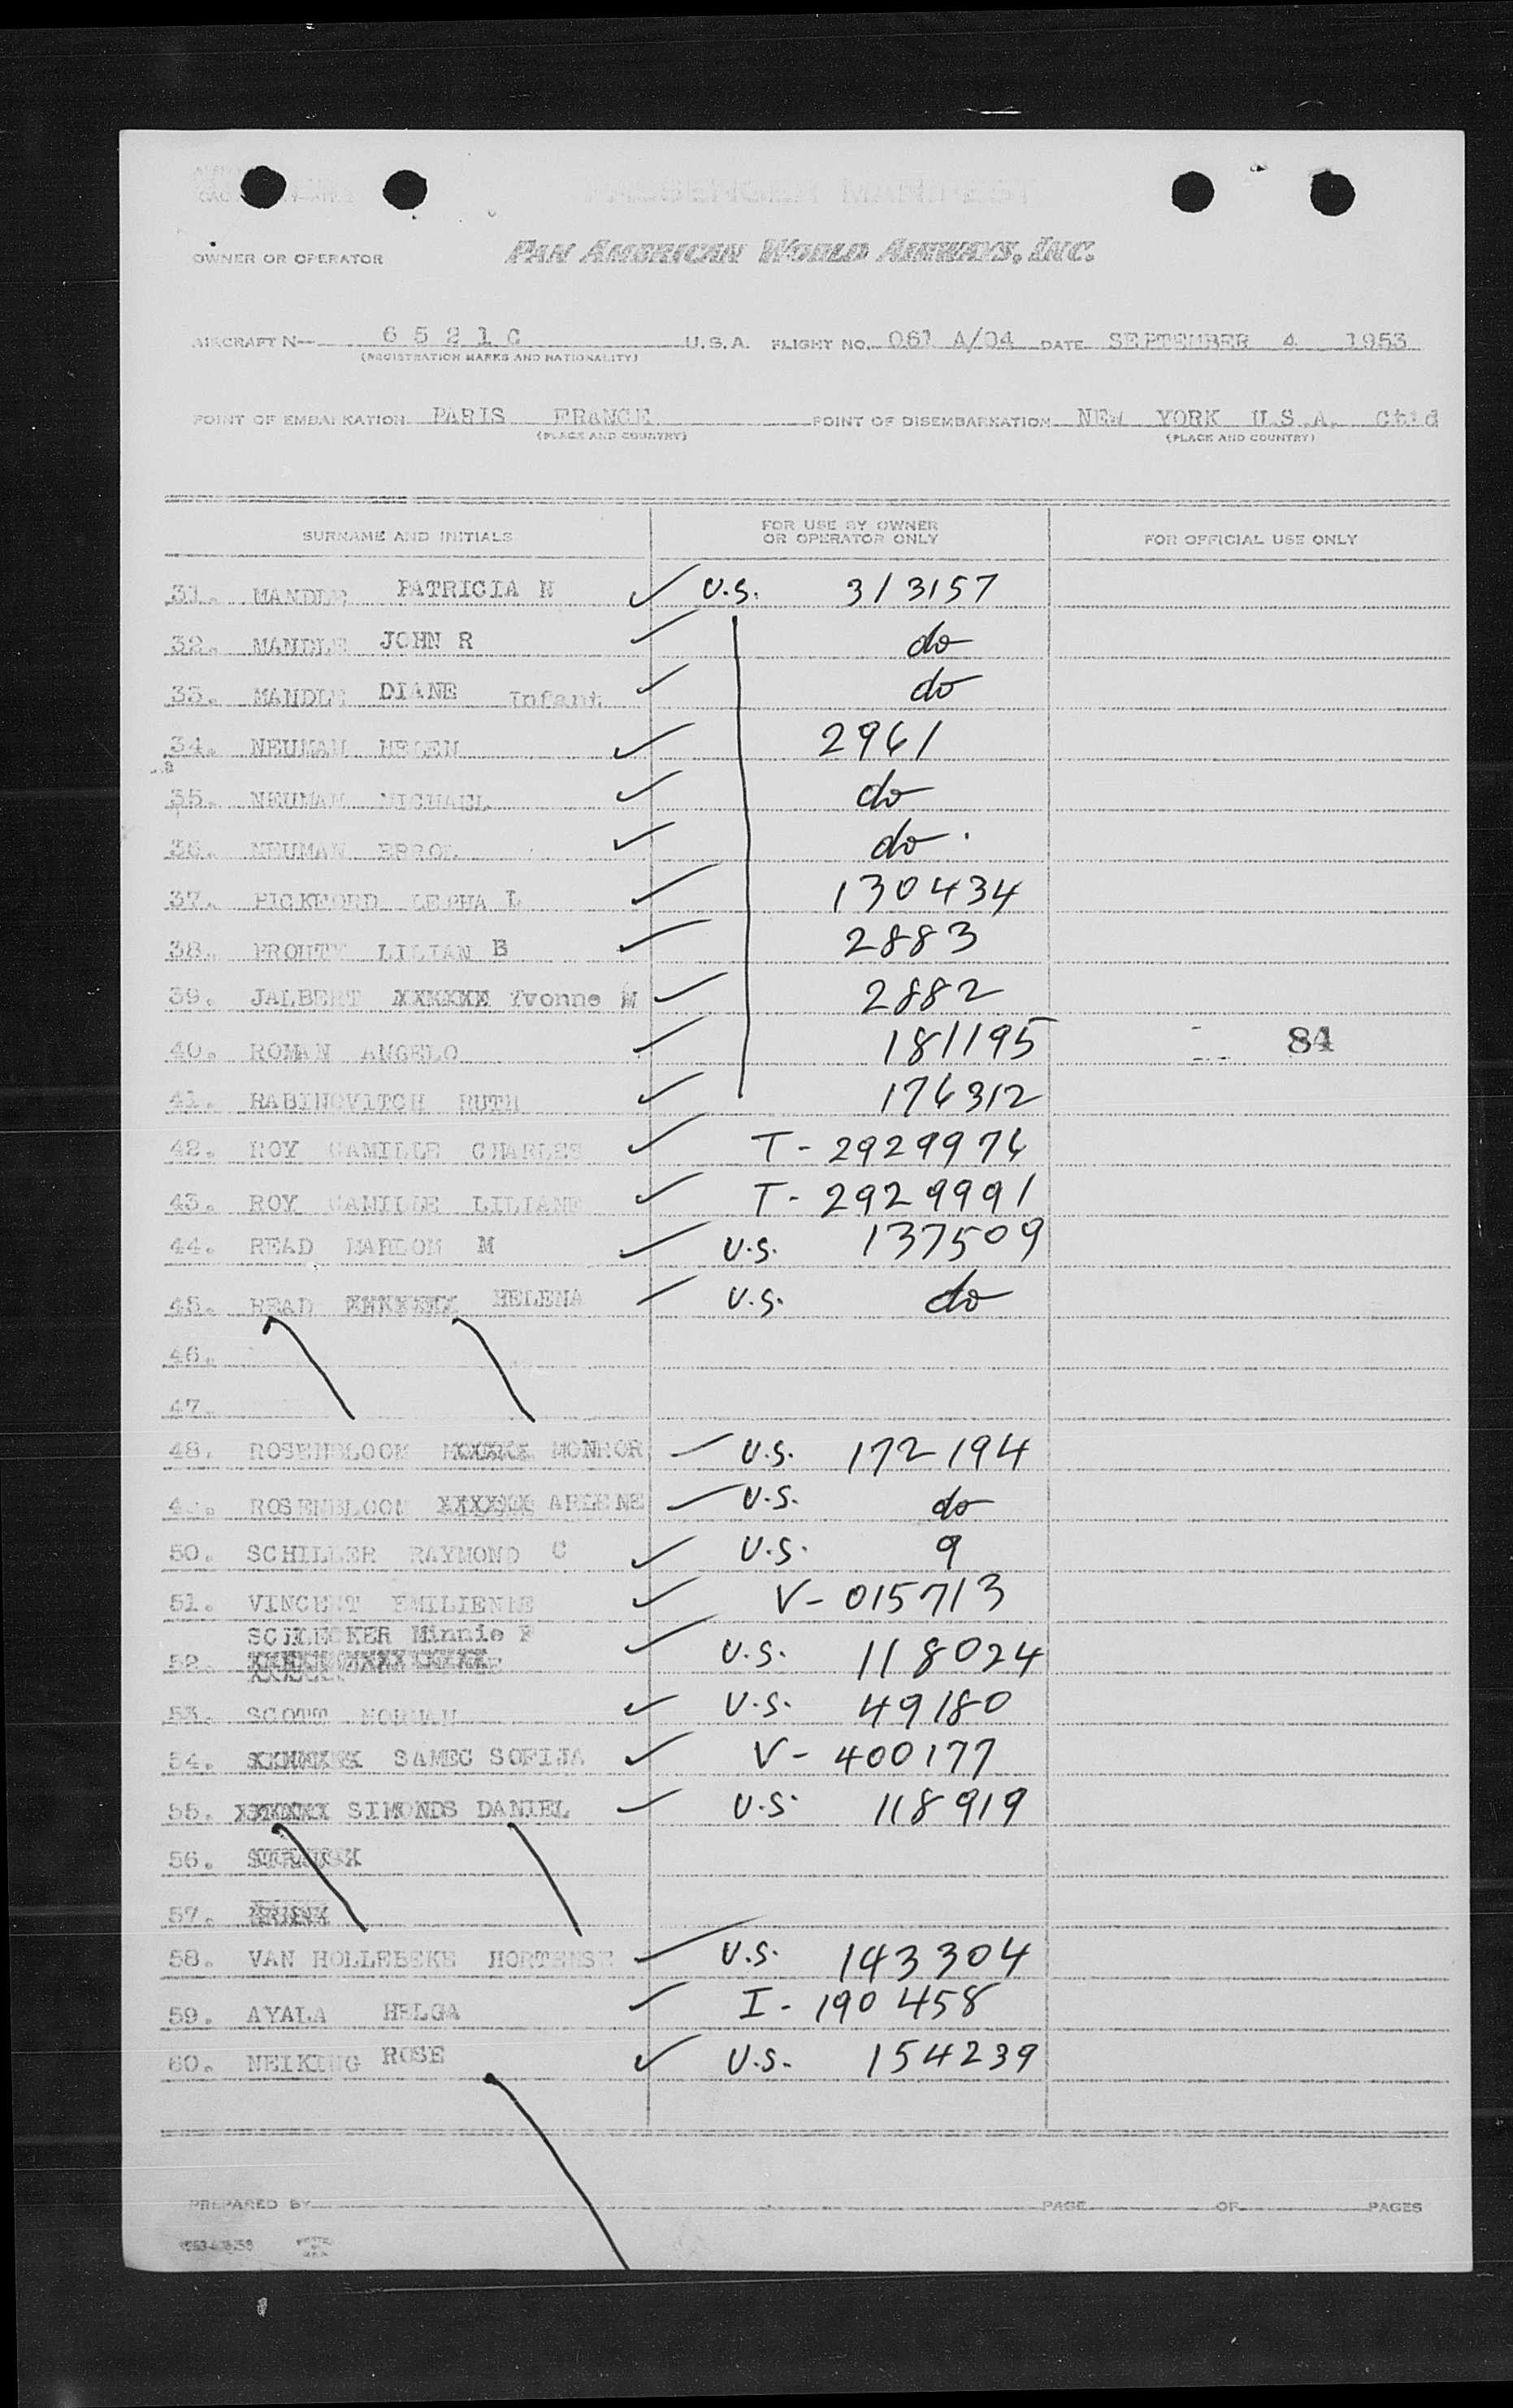 PASSENGER MANIFEST
OWNER OR OPERATOR PAN AMERICAN WORLD AIRWAYS, INC.
AIRCRAFT N— 6 5 2 1 C U.S.A. FLIGHT NO. 061 A/04 DATE SEPTEMBER 4 1953
(REGISTRATION MARKS AND NATIONALITY)
POINT OF EMBARKATION PARIS FRANCE POINT OF DISEMBARKATION NEW YORK U.S.A. Ct'd
(PLACE AND COUNTRY) (PLACE AND COUNTRY)
SURNAME AND INITIALS FOR USE BY OWNER OR OPERATOR ONLY FOR OFFICIAL USE ONLY
31. MANDLE PATRICIA N ✓ U.S. 313157
32. MANDLE JOHN R ✓ do
33. MANDLE DIANE Infant ✓ do
34. NEUMAN HELEN ✓ 2961
35. NEUMAN MICHAEL ✓ do
36. NEUMAN ERROL ✓ do.
37. PICKFORD LEPHA L ✓ 130434
38. PROUTY LILIAN B ✓ 2883
39. JALBERT XXXXXX Yvonne M ✓ 2882
40. ROMAN ANGELO ✓ 181195 84
41. RABINOVITCH RUTH ✓ 176312
42. ROY CAMILLE CHARLES ✓ T-2929976
43. ROY CAMILLE LILIANE ✓ T-2929991
44. READ MARLON M ✓ U.S. 137509
45. READ HELENA ✓ U.S. do
46.
47.
48. ROSENBLOOM MONROE ✓ U.S. 172194
49. ROSENBLOOM XXXXXX ARLENE ✓ U.S. do
50. SCHILLER RAYMOND C ✓ U.S. 9
51. VINCENT EMILIENNE ✓ V-015713
SCHLECKER Minnie F
52. ✓ U.S. 118024
53. SCOTT NORMAN ✓ U.S. 49180
54. SAMEC SOFIJA ✓ V-400177
55. SIMONDS DANIEL ✓ U.S. 118919
56.
57.
58. VAN HOLLEBEKE HORTENSE ✓ U.S. 143304
59. AYALA HELGA ✓ I-190458
60. NEIKING ROSE ✓ U.S. 154239
PREPARED BY PAGE OF PAGES